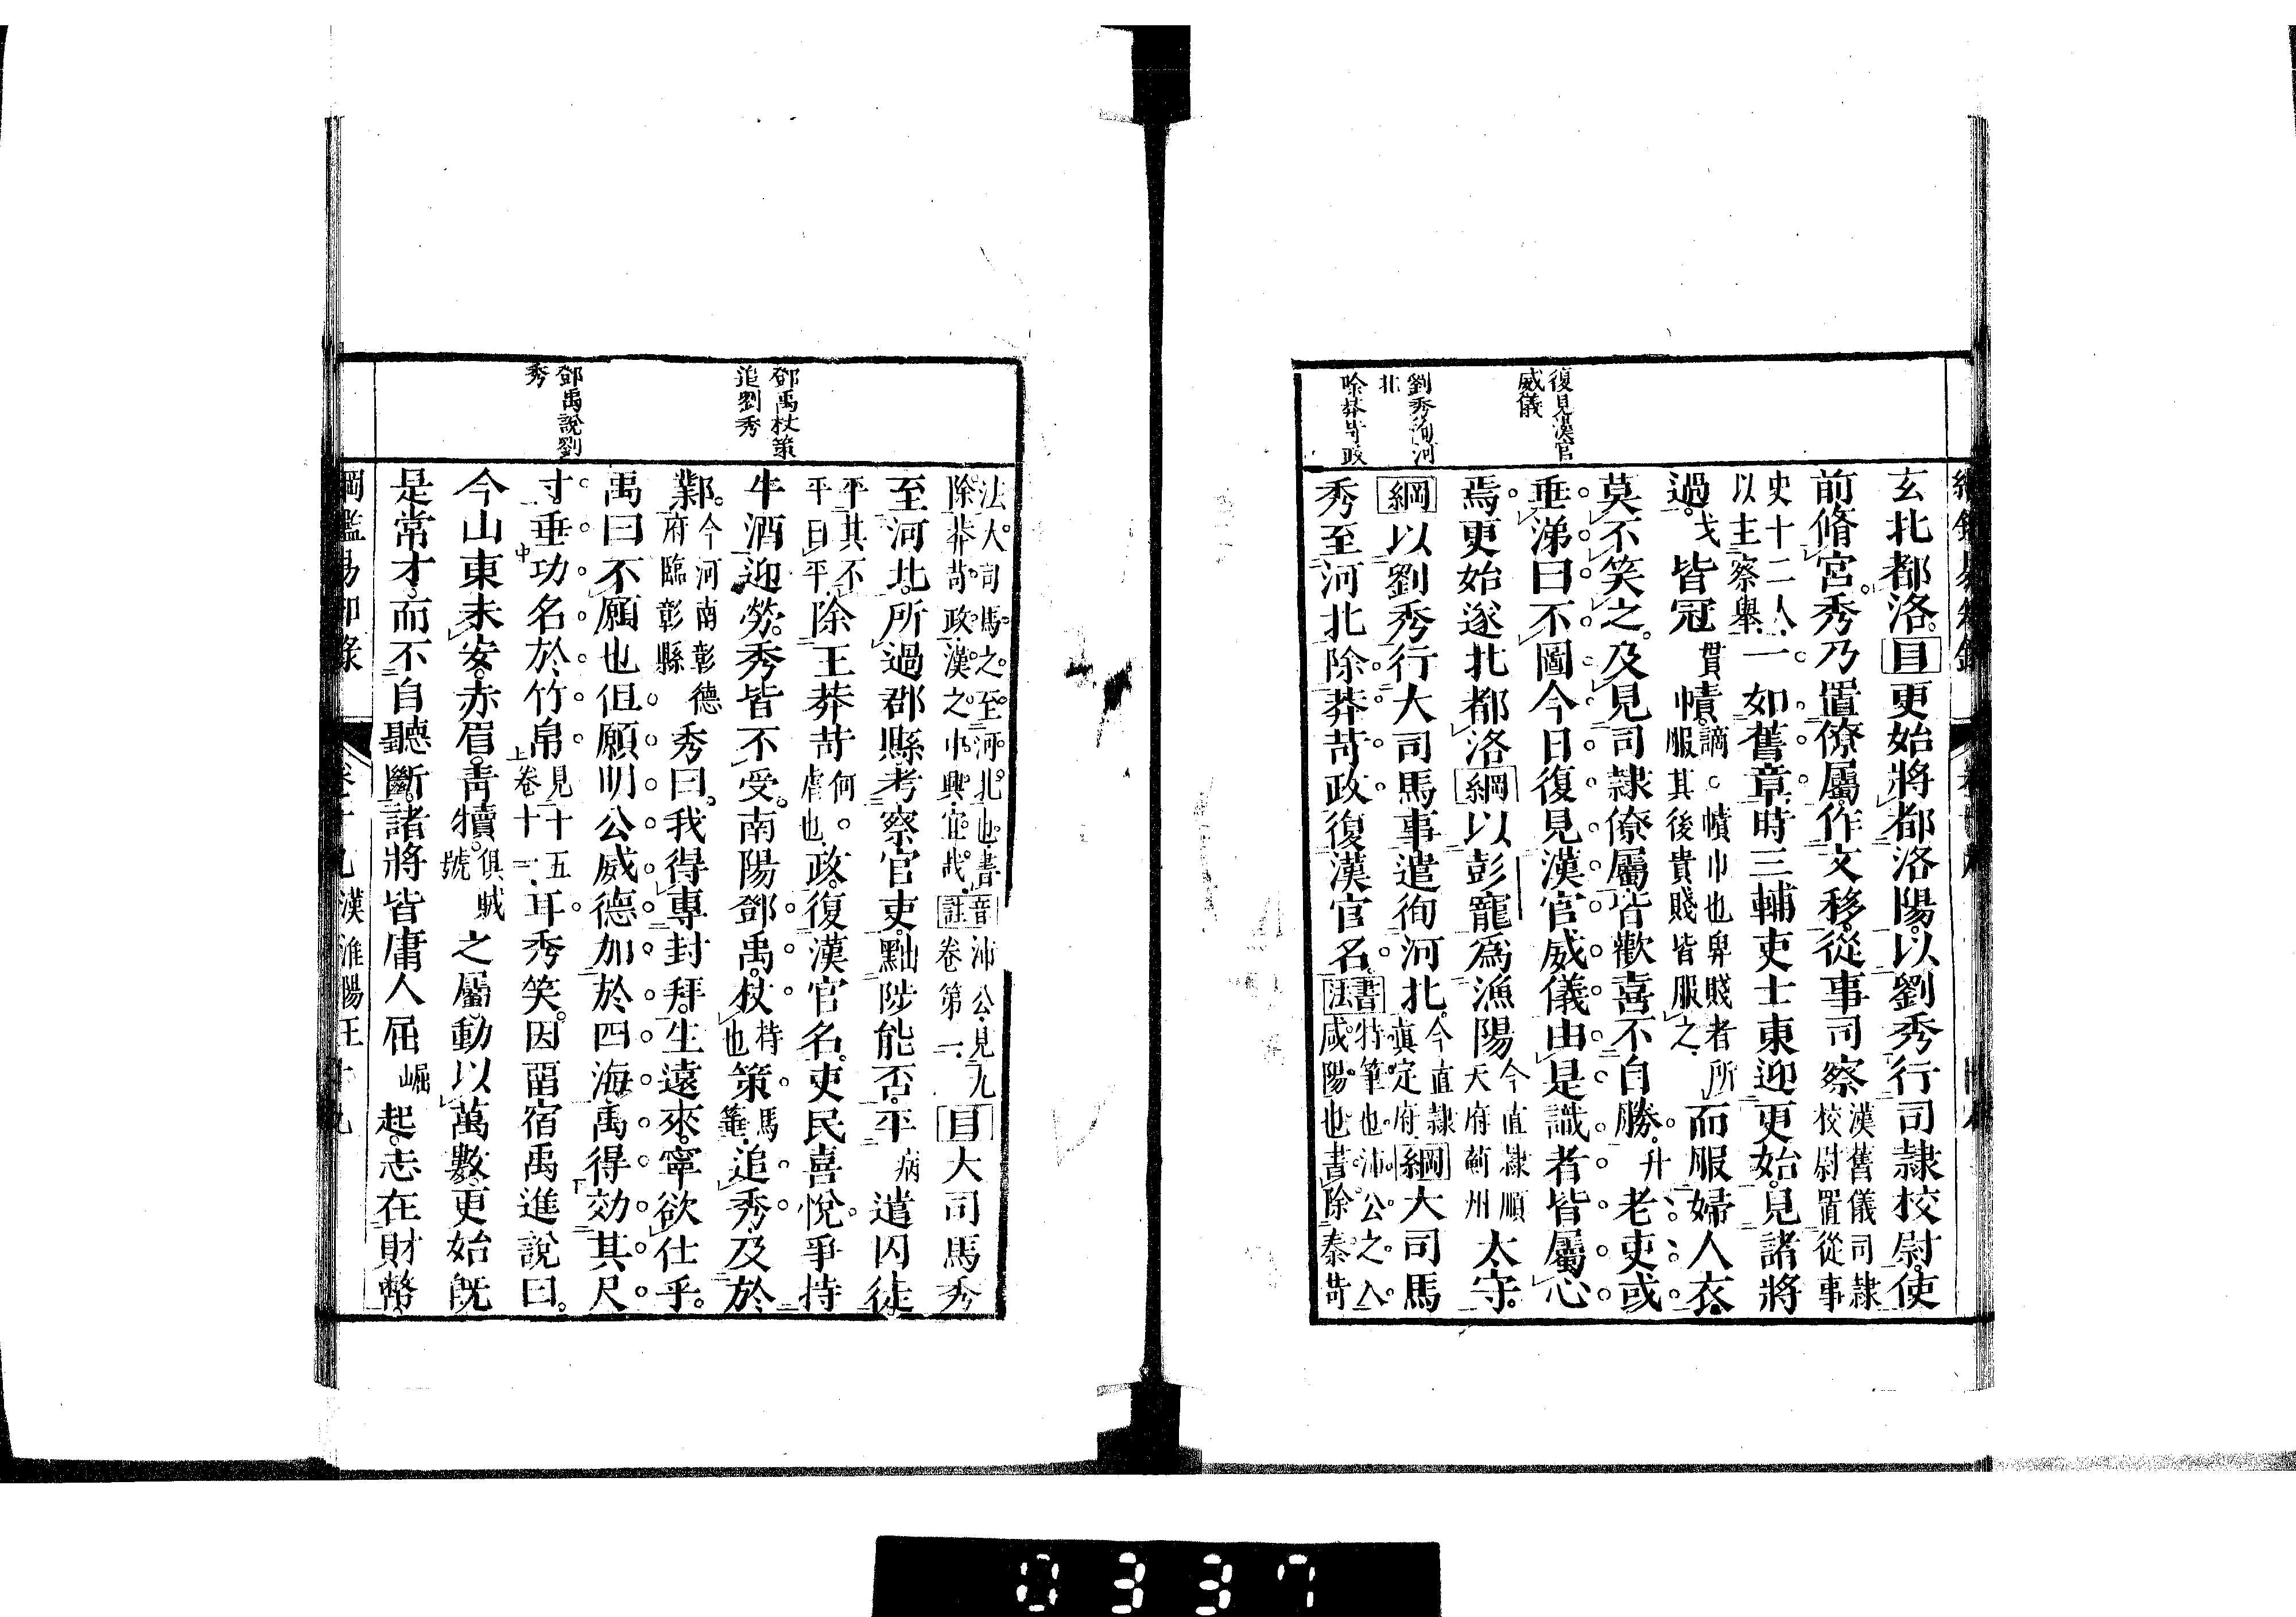 復見漢官
威儀
劉秀徇河
北
除莽苛政
玄北都洛。目更始將都洛陽。以劉秀行司隸校尉。使
前脩宮。秀乃置僚屬。作文移。從事司察漢舊儀司隸
校尉置從事
史十二人。
以主察舉。一如舊章。時三輔吏士東迎更始。見諸將
過。戈皆冠貫幘。謫。幘巾也卑賤者所
服其後貴賤皆服之。而服婦人衣。
莫不笑之。及見司隸僚屬。皆歡喜不自勝。升老吏或
垂涕曰。不圖今日復見漢官威儀。由是識者皆屬心
焉。更始遂北都洛。綱以彭寵爲漁陽今直隸順
天府薊州太守。
綱以劉秀行大司馬事。遣徇河北。今直隸
真定府。綱大司馬
秀至河北。除莽苛政。復漢官名。書法特筆也。沛公之入
咸陽也。書。除秦苛
鄧禹杖策
追劉秀
鄧禹說劉
秀
法。大司馬之至河北也。書
除莽苛政。漢之中興。宜哉。音註沛公。見九
卷第一。目大司馬秀
至河北。所過郡縣。考察官吏。黜陟能否。平病遣囚徒。
平其不
平曰平。除王莽苛何。
虐也。政。復漢官名。吏民喜悅。爭持
牛酒迎勞。秀皆不受。南陽鄧禹。杖持
也策馬
箠。追秀。及於
鄴。今河南彰德
府臨彰縣秀曰。我得專封拜。生遠來。寧欲仕乎。
禹曰。不願也。但願明公威德加於四海。禹得効其尺
寸。垂功名於竹帛見十五
卷十一。耳。秀笑。因留宿。禹進說曰。
今山東未安。赤眉。青犢。俱賊
號之屬。動以萬數。更始既
是常才。而不自聽斷。諸將皆庸人屈崛起。志在財幣。
綱鑑易知錄
卷十九漢淮陽王十九
0337